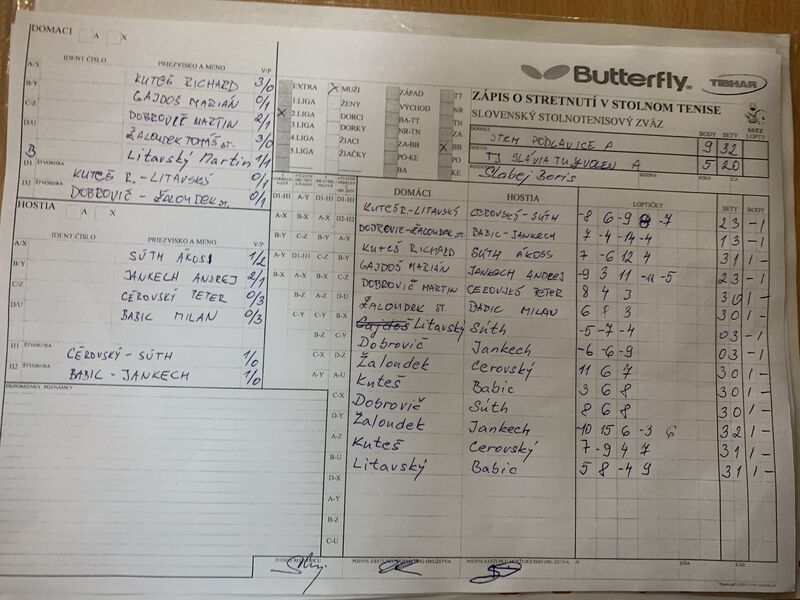 DOMÁCI A X
IDENT ČÍSLO PRIEZVISKO A MENO V/P
A/X KUTEŠ RICHARD 3/0
B/Y GAJDOŠ MARIÁN 0/1
C/Z DOBROVIČ MARTIN 2/1
D/U ŽALOUDEK TOMÁŠ ST. 3/0
B Litavský Martin 1/1
D1 ŠTVORHRA KUTEŠ R. - LITAVSKÝ 0/1
D2 ŠTVORHRA DOBROVIČ - ŽALOUDEK ST. 0/1
HOSTIA A X
IDENT ČÍSLO PRIEZVISKO A MENO V/P
A/X SÚTH ÁKOSS 1/2
B/Y JANKECH ANDREJ 2/1
C/Z CÉROVSKÝ PETER 0/3
D/U BABIC MILAN 0/3
H1 ŠTVORHRA CÉROVSKÝ - SÚTH 1/0
H2 ŠTVORHRA BABIC - JANKECH 1/0
PRIPOMIENKY, POZNÁMKY
EXTRA X MUŽI ZÁPAD TT
1.LIGA ŽENY VÝCHOD NR
X 2.LIGA DORCI BA-TT TN
3.LIGA DORKY NR-TN ZA
4.LIGA ŽIACI ZA-BB X BB
5.LIGA ŽIAČKY PO-KE PO
KE
Butterfly TIBHAR
ZÁPIS O STRETNUTÍ V STOLNOM TENISE
SLOVENSKÝ STOLNOTENISOVÝ ZVÄZ
SSTZ
DOMÁCI STKM PODLAVICE A BODY 9 SETY 32 LOPTY
HOSTIA TJ SLÁVIA TU ZVOLEN A 5 20
Slabej Boris SEZÓNA KOLO Č.Z.
DOMÁCI HOSTIA LOPTIČKY SETY BODY
KUTEŠ R. - LITAVSKÝ CEROVSKÝ - SÚTH -8 6 -9 8 -7 2 3 - 1
DOBROVIČ - ŽALOUDEK ST. BABIC - JANKECH 7 -4 -14 -4 1 3 - 1
KUTEŠ RICHARD SÚTH ÁKOSS 7 -6 12 4 3 1 1 -
GAJDOŠ MARIÁN JANKECH ANDREJ -9 3 11 -11 -5 2 3 - 1
DOBROVIČ MARTIN CEROVSKÝ PETER 8 4 3 3 0 1 -
ŽALOUDEK ST. BABIC MILAN 6 8 3 3 0 1 -
Gajdoš Litavský Súth -5 -7 -4 0 3 - 1
Dobrovič Jankech -6 -6 -9 0 3 - 1
Žaloudek Cerovský 11 6 7 3 0 1 -
Kuteš Babic 3 6 8 3 0 1 -
Dobrovič Súth 8 6 8 3 0 1 -
Žaloudek Jankech -10 15 6 -3 6 3 2 1 -
Kuteš Cerovský 7 -9 4 7 3 1 1 -
Litavský Babic 5 8 -4 9 3 1 1 -
D-X
A-Y
B-Z
C-U
PODPIS ZÁSTUPCU DOMÁCEHO DRUŽSTVA PODPIS ZÁSTUPCU HOSŤUJÚCEHO DRUŽSTVA V DŇA ČAS